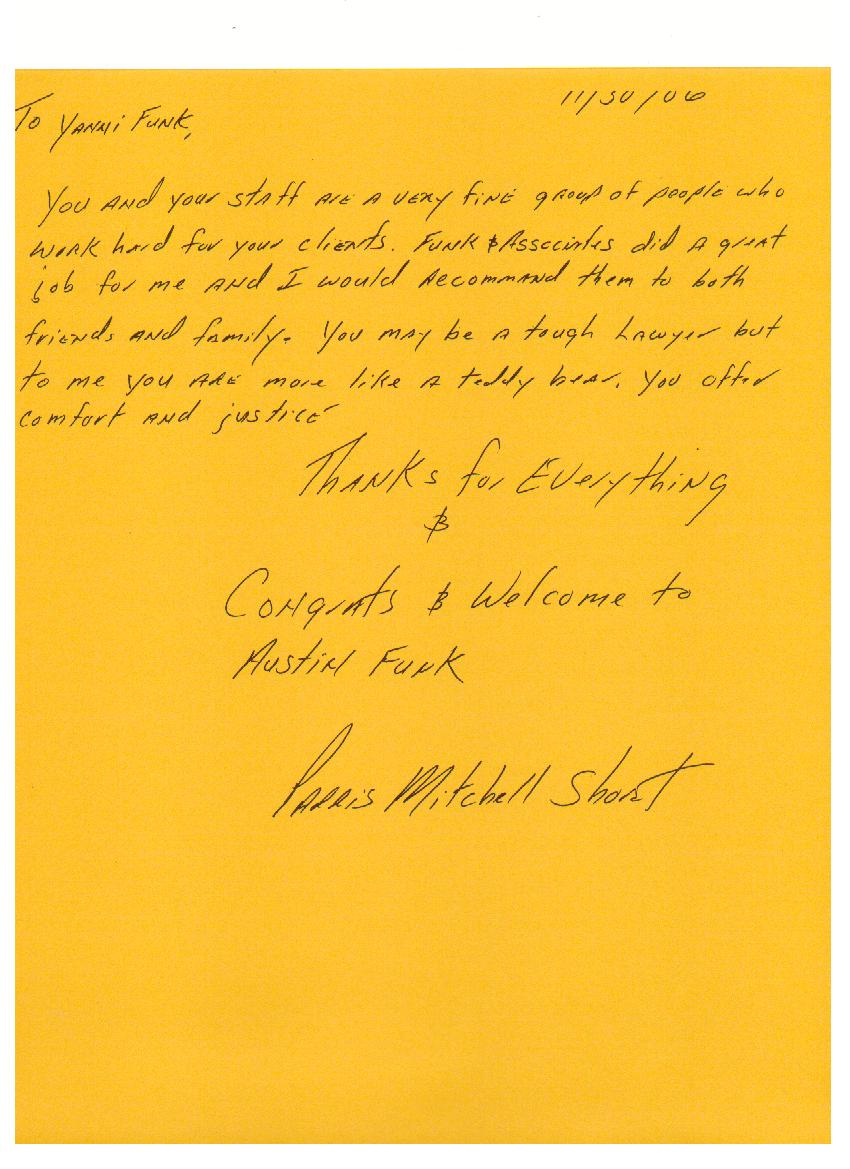 11/30/06
To Yanni Funk,
You and your staff are a very fine group of people who
work hard for your clients. Funk & Associates did a great
job for me and I would recommand them to both
friends and family. You may be a tough Lawyer but
to me you are more like a teddy bear. You offer
comfort and justice
Thanks for Everything
&
Congrats & Welcome to
Austin Funk
Parris Mitchell Short